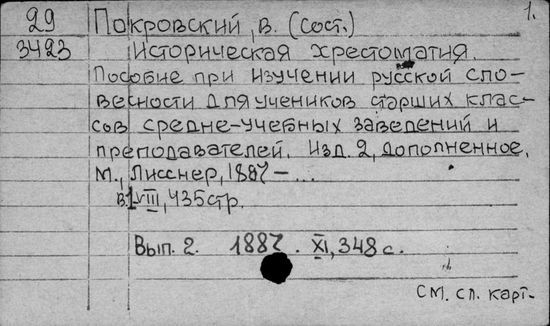 1.
29 Покровский, В. (сост.)
3423 Историческая хрестоматия.
Пособие при изучении русской сло-
весности для учеников старших клас-
сов средне-учебных заведений и
преподавателей. Изд. 2, дополненное.
М., Лисснер, 1887 – ...
В.1 VIII, 435 стр.
Вып. 2. 1887. XI, 348 с.
см. сл. карт.